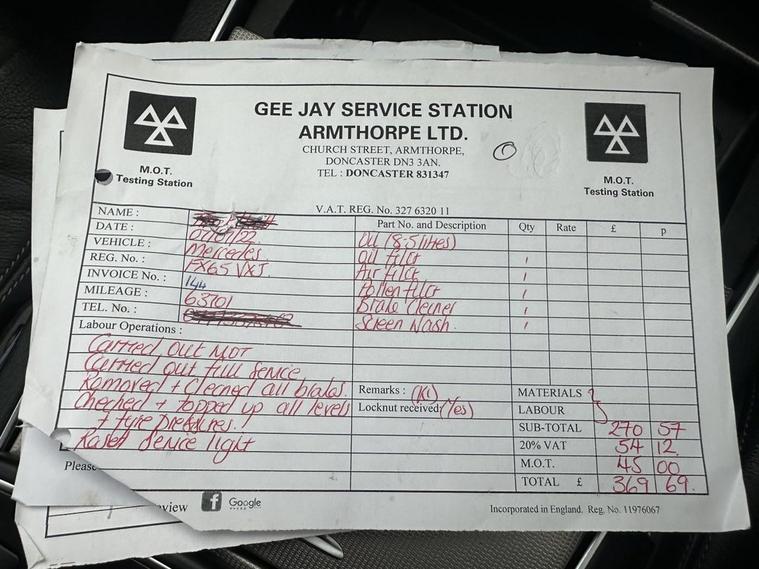 GEE JAY SERVICE STATION
ARMTHORPE LTD.
CHURCH STREET, ARMTHORPE,
DONCASTER DN3 3AN.
TEL : DONCASTER 831347
M.O.T.
Testing Station
M.O.T.
Testing Station
V.A.T. REG. No. 327 6320 11
NAME :
Part No. and Description Qty Rate £ p
DATE :
Oil (8.5 litres)
VEHICLE : Mercedes
Oil filter 1
REG. No. : FX65 VXJ
Air filter 1
INVOICE No. : 144
Pollen filter 1
MILEAGE : 63701
Brake Cleaner 1
TEL. No. :
Screen Wash. 1
Labour Operations :
Carried Out MOT
Carried out full Service
Removed + Cleaned all brakes.
Checked + topped up all levels
+ tyre pressures.
Reset Service light
Remarks : (K1)
Locknut received: (Yes)
MATERIALS
LABOUR
SUB-TOTAL 270 57
20% VAT 54 12
M.O.T. 45 00
TOTAL £ 369 69
Please
view Google
Incorporated in England. Reg. No. 11976067